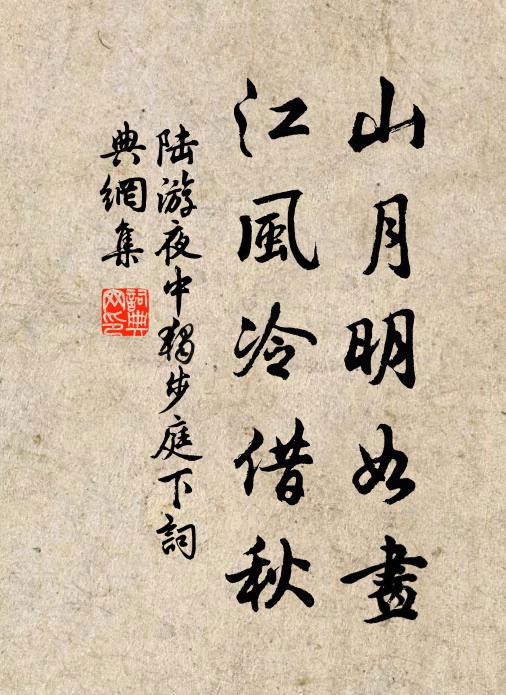 山月明如晝
江風冷借秋
陸游夜中獨步庭下詞
典網集
詞典
网印